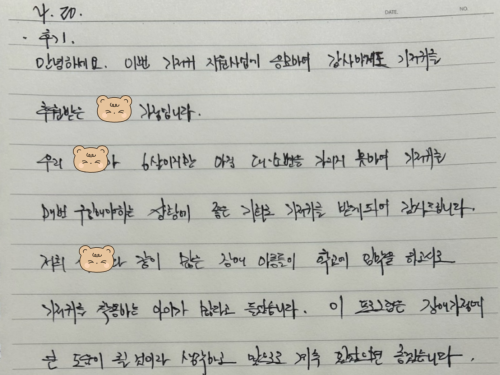 4. 20.
· 후기.
안녕하세요. 이번 기저귀 지원사업에 응모하여 감사하게도 기저귀를
후원받은 가정입니다.
우리 가 6살이지만 아직 대·소변을 가리지 못하여 기저귀를
매번 구입해야하는 상황에 좋은 기회로 기저귀를 받게되어 감사드립니다.
저희 같이 많은 장애 아동들이 학교에 입학을 하고서도
기저귀를 착용하는 아이가 많다고 들었습니다. 이 프로그램은 장애가정에
큰 도움이 될 것이라 생각하고 앞으로 계속 되었으면 좋겠습니다.
DATE.
NO.